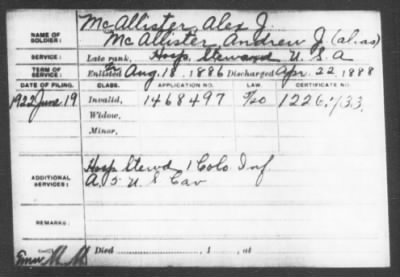 McAllister, Alex J.
NAME OF SOLDIER: McAllister Andrew J (alias)
SERVICE: Late rank, Hosp. Steward U.S.A
TERM OF SERVICE: Enlisted Aug. 18, 1886 Discharged Apr. 22, 1888
DATE OF FILING. CLASS. APPLICATION NO. LAW. CERTIFICATE NO.
1922 June 19 Invalid, 1468497 1226,133
Widow,
Minor,
ADDITIONAL SERVICES: Hosp Stewd 1 Colo Inf
A. 5 U S Cav
REMARKS:
Died , 1 , at